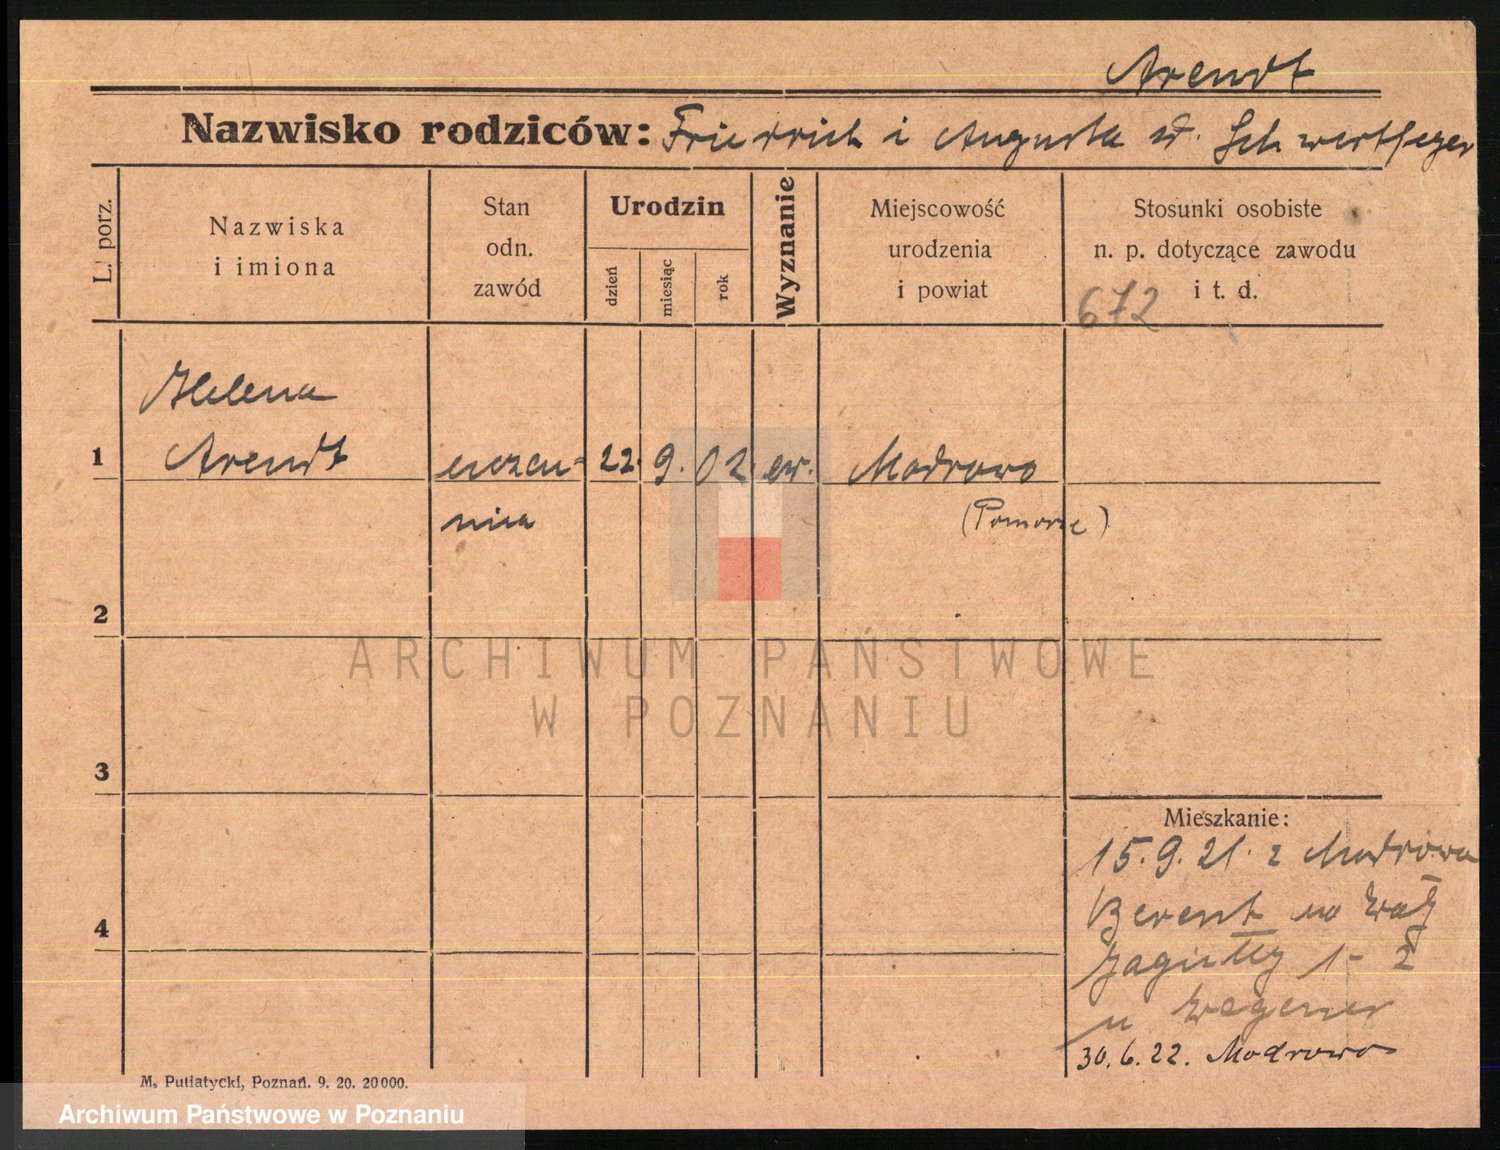 Arendt
Nazwisko rodziców: Friedrich i Augusta d. Schwertfeger
L. porz.
Nazwiska
i imiona
Stan
odn.
zawód
Urodzin
dzień
miesiąc
rok
Wyznanie
Miejscowość
urodzenia
i powiat
Stosunki osobiste
n. p. dotyczące zawodu
i t. d.
672
Helena
1 Arendt uczen- 22. 9. 02 ew. Modrowo
nica (Pomorze)
2
3
4
Mieszkanie:
15.9.21. z Modrowa
Berent na Wały
Jagiełły 1-2
u Wegener
30.6.22. Modrowo
M. Putiatycki, Poznań. 9. 20. 20000.
ARCHIWUM PAŃSTWOWE
W POZNANIU
Archiwum Państwowe w Poznaniu